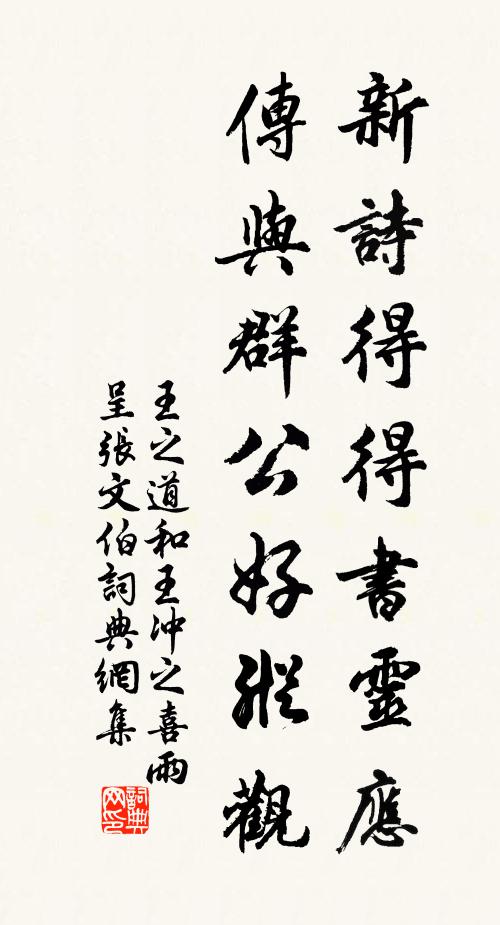 新詩得得書靈應
傳與群公好縱觀
王之道和王沖之喜雨
呈張文伯詞典網集
詞典网印